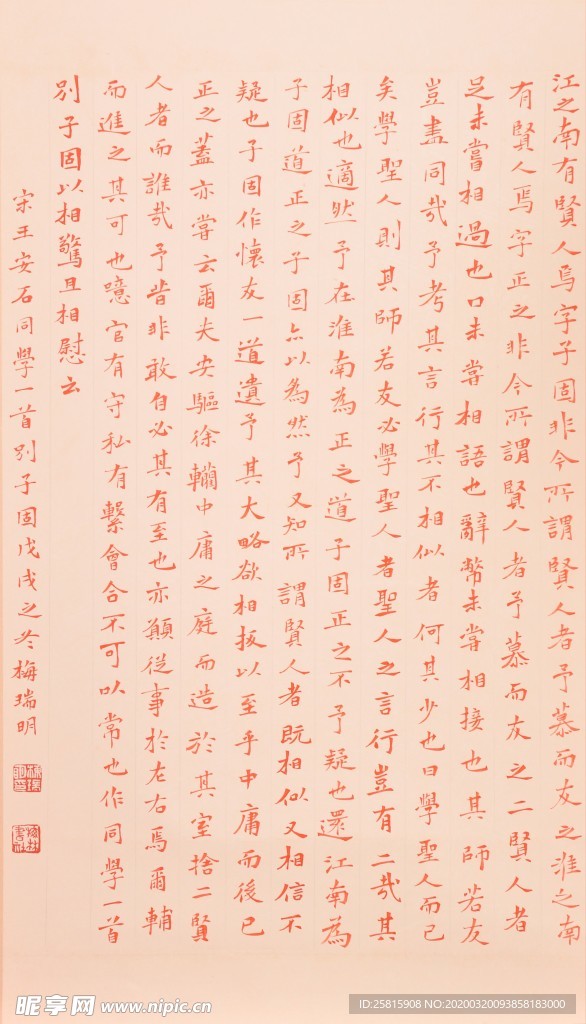 江之南有賢人焉字子固非今所謂賢人者予慕而友之淮之南
有賢人焉字正之非今所謂賢人者予慕而友之二賢人者
足未嘗相過也口未嘗相語也辭幣未嘗相接也其師若友
豈盡同哉予考其言行其不相似者何其少也曰學聖人而已
矣學聖人則其師若友必學聖人者聖人之言行豈有二哉其
相似也適然予在淮南為正之道子固正之不予疑也還江南為
子固道正之子固亦以為然予又知所謂賢人者既相似又相信不
疑也子固作懷友一道遺予其大略欲相扳以至乎中庸而後已
正之蓋亦嘗云爾夫安驅徐轥中庸之庭而造於其室捨二賢
人者而誰哉予昔非敢自必其有至也亦願從事於左右焉爾輔
而進之其可也噫官有守私有繫會合不可以常也作同學一首
別子固以相驚且相慰云
宋王安石同學一首別子固戊戌之冬梅瑞明
昵享网 www.nipic.cn
ID:25815908 NO:20200320093858183000